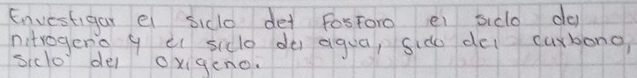 Envestigar el siclo del Fosforo el siclo del
nitrogeno y el siclo del agua, siclo del carbono,
siclo del oxigeno.